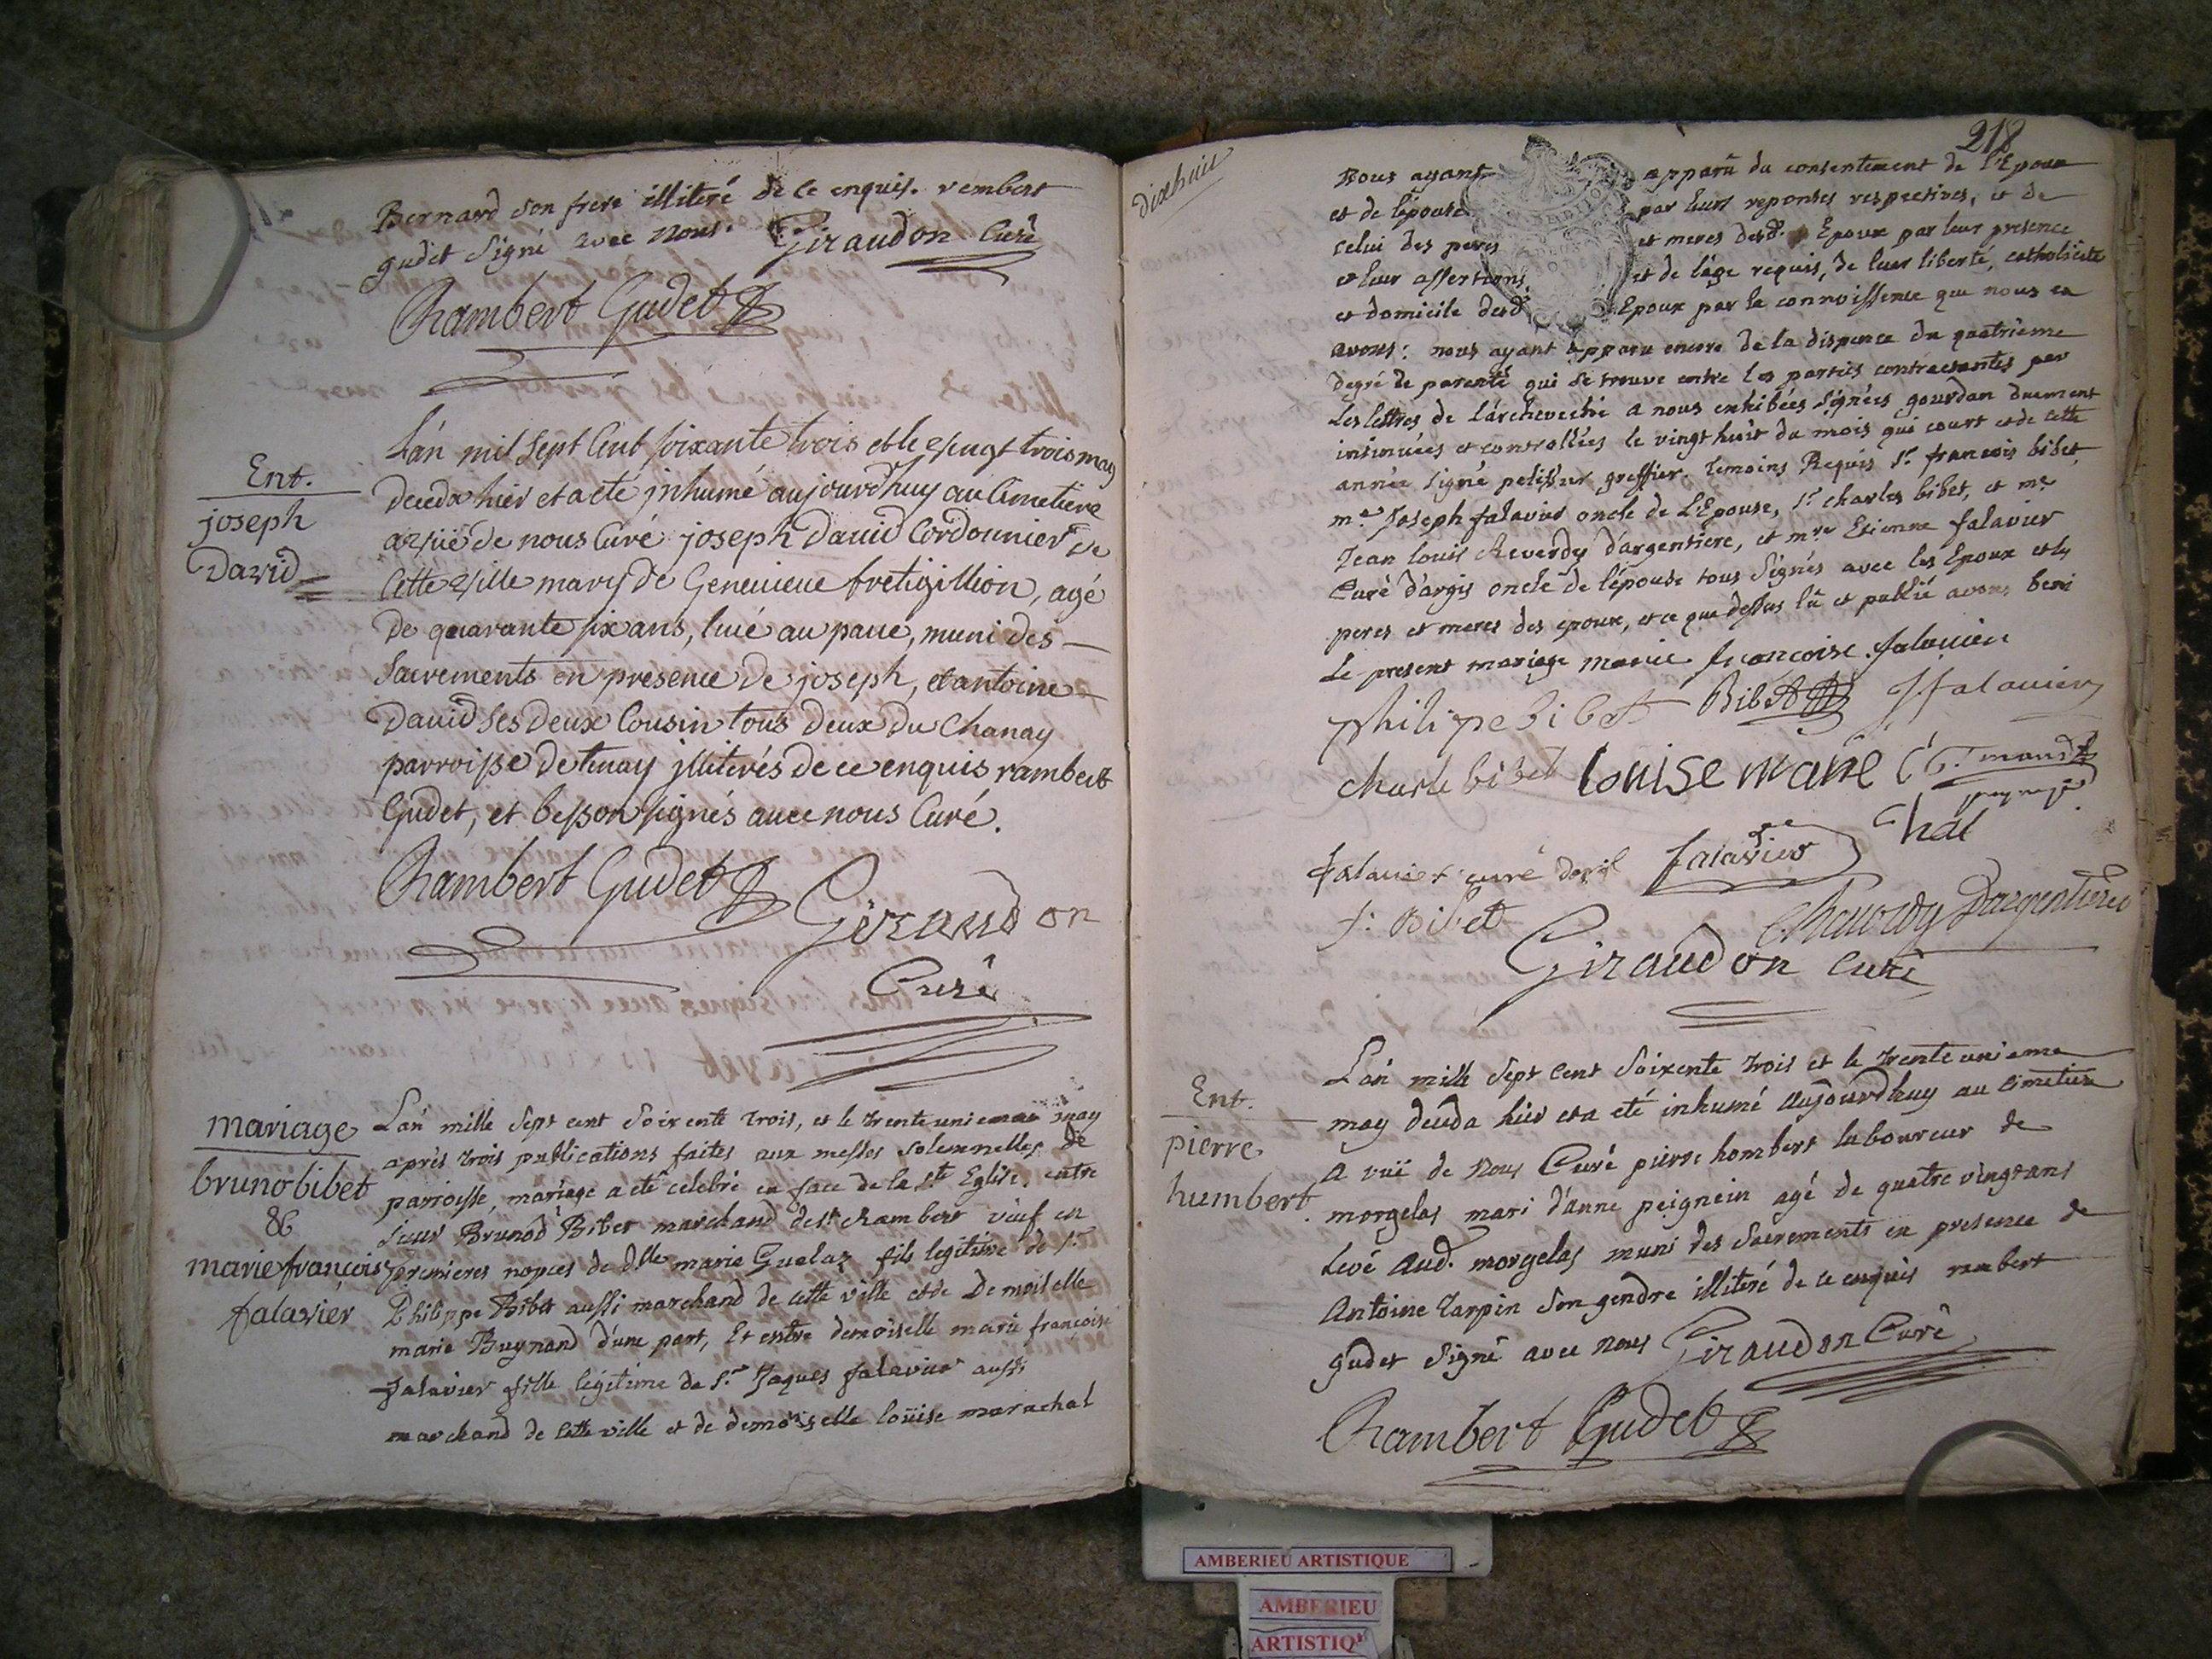 Bernard son frere illiteré de ce enquis. rembert
gudet signé avec nous. Giraudon Curé
Rambert Gudet
Ent.
joseph
David
L'án mil sept Cent soixante trois et le vingt trois may
deceda hier et a eté jnhumé aujourd'huy au Cimetiere
a vüe de nous Curé joseph David Cordonnier de
Cette ville mary de Genevieve fretigillion, agé
de quarante six ans, luié au paué, muni des
sacrements en presence de joseph, et antoine
David ses deux Cousin tous deux du Chanay
parroisse de tenay jlliterés de ce enquis rambert
Gudet, et besson signés avec nous Curé.
Rambert Gudet
Giraudon
Curé
mariage
bruno bibet
&
marie françoise
falavier
L'án mille sept cent soixente trois, et le trente unieme may
après trois publications faites aux messes solennelles de
parroisse, mariage a eté celebré en face de la ste Eglise. entre
sieur Brunod Bibet marchand de st rambert veuf en
premieres nopces de dlle marie Guelaz fils legitime de sr
Philippe Bibet aussi marchand de cette ville et de Demoiselle
marie Bugnand d'une part, Et entre demoiselle marie françoise
falavier fille légitime de sr Jaques falavier aussi
marchand de cette ville et de demoiselle loüise marechal
dixhuit
218
Nous ayant apparû du consentement de l'Epoux
et de l'épouse par leurs reponses respectives, et de
celui des peres et meres desd. Epoux par leur presence
et leur assertions, et de l'áge requis, de leur liberté, catholicité
et domicile desd. Epoux par la connoissence que nous en
avons: nous ayant apparu encore de la dispence du quatrieme
degré de parenté qui se trouve entre les parties contractantes par
les lettres de l'archeveché a nous exhibées signées gourdan duement
insinuées et controllées le vingt huit du mois qui court et de cette
année signé pelisser greffier. temoins Requis sr. francois bibet,
me. Joseph falavier oncle de L'Epouse, sr charles bibet, et me
Jean louis Reverdy d'argentiere, et mre Etienne falavier
Curé d'argis oncle de l'épouse tous signés avec les Epoux et les
peres et meres des epoux, et ce que dessus lû et publié avons beni
le present mariage marie francoise. falavier
philipe bibet Bibet J falavier
charle bibet louise mare chal
falavier curé falavier
f: Bibet Reverdy Dargentiere
Giraudon curé
Ent.
pierre
humbert.
L'án mille sept cent soixente trois et le trente unieme
may deceda hier et a eté inhumé aujourd'huy au cimetiere
a vuë de nous Curé pierre hombert laboureur de
morgelas mari d'anne peignein agé de quatre vingt ans
levé aud. morgelas muni des sacrements en presence de
Antoine tarpin son gendre illiteré de ce enquis rembert
gudet signé avec nous Giraudon Curé
Rambert Gudet
AMBERIEU ARTISTIQUE
AMBERIEU
ARTISTIQ